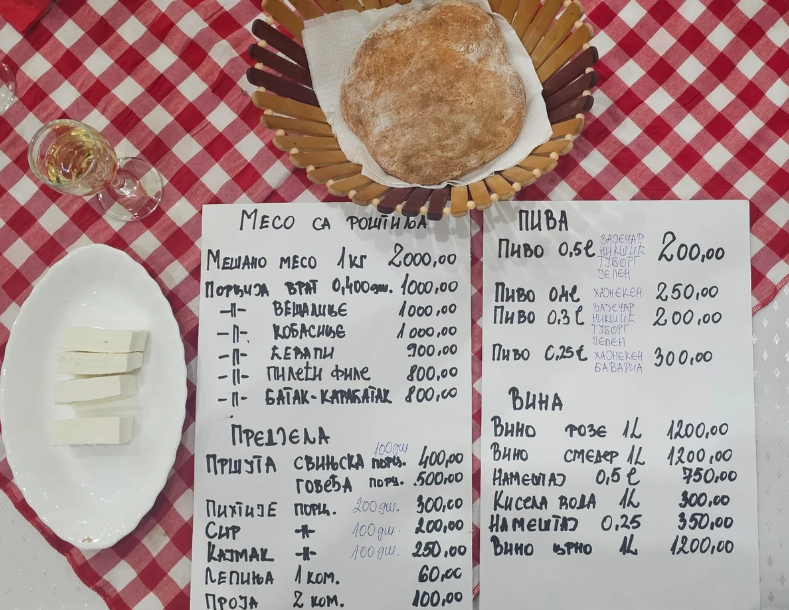 Месо са роштиља
Мешано месо 1кг 2000,00
Порција врат 0,400дш. 1000,00
-||- вешалице 1000,00
-||- кобасице 1000,00
-||- ћевапи 900,00
-||- пилећи филе 800,00
-||- батак-карабатак 800,00
-||-
Предјела
100дш
Пршута свињска порц. 400,00
говеђа порц. 500,00
Пихтије порц. 200дш. 300,00
Сир -||- 100дш. 200,00
Кајмак -||- 100дш. 250,00
Лепиња 1 ком. 60,00
Проја 2 ком. 100,00
Пива
Пиво 0,5ℓ зајечар 200,00
никшић
туборг
јелен
Пиво 0,4ℓ хајнекен 250,00
Пиво 0,3ℓ зајечар 200,00
никшић
туборг
јелен
Пиво 0,25ℓ хајнекен 300,00
бавариа
Вина
Вино розе 1L 1200,00
Вино смедер 1L 1200,00
Намештај 0,5ℓ 750,00
Кисела вода 1L 300,00
Намештај 0,25 350,00
Вино црно 1L 1200,00